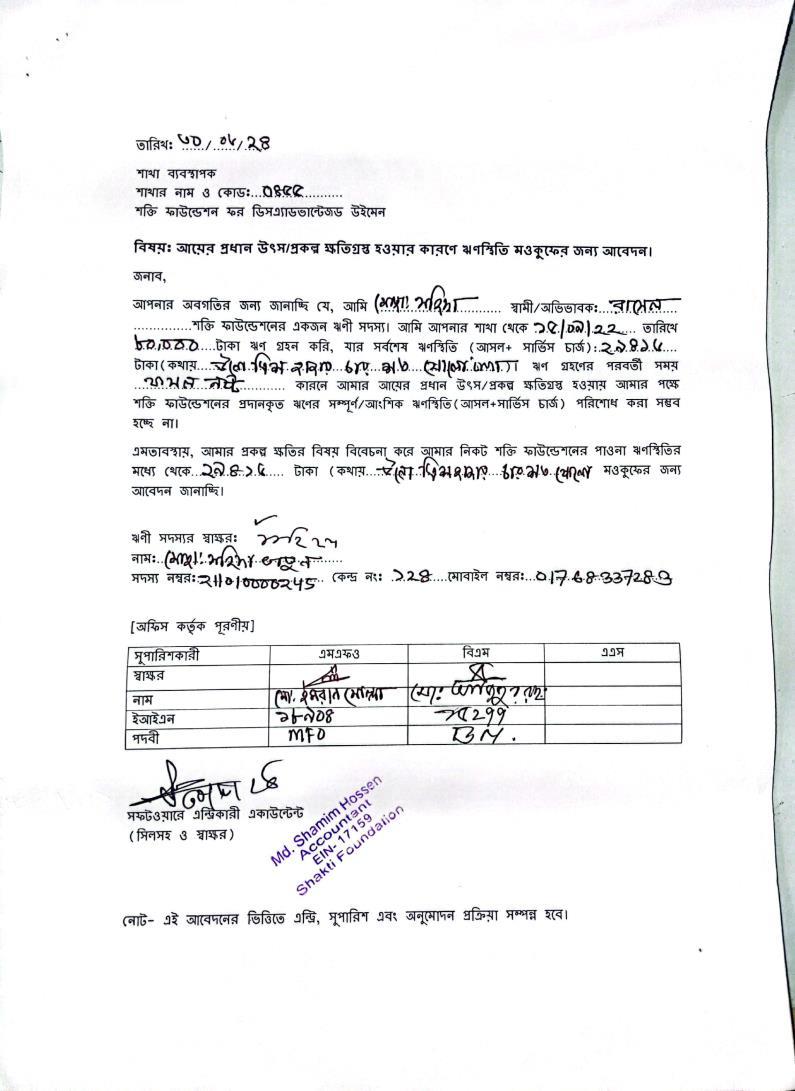 তারিখ: ৩০/০৬/২৪
শাখা ব্যবস্থাপক
শাখার নাম ও কোড:...০৪৫৫...........
শক্তি ফাউন্ডেশন ফর ডিসএ্যাডভান্টেজড উইমেন
বিষয়: আয়ের প্রধান উৎস/প্রকল্প ক্ষতিগ্রস্থ হওয়ার কারণে ঋণস্থিতি মওকুফের জন্য আবেদন।
জনাব,
আপনার অবগতির জন্য জানাচ্ছি যে, আমি মোছা: ............ স্বামী/অভিভাবক:...রাসেল....
...............শক্তি ফাউন্ডেশনের একজন ঋণী সদস্য। আমি আপনার শাখা থেকে ১৫/০৯/২২.... তারিখে
৮০,০০০....টাকা ঋণ গ্রহন করি, যার সর্বশেষ ঋণস্থিতি (আসল+ সার্ভিস চার্জ):২৯৪১৬....
টাকা(কথায়.... হাজার চার শত ষোলো টাকা) ঋণ গ্রহণের পরবর্তী সময়
..ফসল নষ্ট............ কারনে আমার আয়ের প্রধান উৎস/প্রকল্প ক্ষতিগ্রস্থ হওয়ায় আমার পক্ষে
শক্তি ফাউন্ডেশনের প্রদানকৃত ঋণের সম্পূর্ণ/আংশিক ঋণস্থিতি(আসল+সার্ভিস চার্জ) পরিশোধ করা সম্ভব
হচ্ছে না।
এমতাবস্থায়, আমার প্রকল্প ক্ষতির বিষয় বিবেচনা করে আমার নিকট শক্তি ফাউন্ডেশনের পাওনা ঋণস্থিতির
মধ্যে থেকে...২৯৪১৬..... টাকা (কথায়.... হাজার চার শত ষোলো মওকুফের জন্য
আবেদন জানাচ্ছি।
ঋণী সদস্যর স্বাক্ষর:
নাম:..মোছা: .............
সদস্য নম্বর:211010000245.. কেন্দ্র নং: ১২৪....মোবাইল নম্বর:...01768337283
[অফিস কর্তৃক পূরণীয়]
সুপারিশকারী এমএফও বিএম এএস
স্বাক্ষর
নাম মো. ইমরান মোল্যা মো:
ইআইএন ১৮৯০৪
পদবী MFO BM.
সফটওয়ারে এন্ট্রিকারী একাউন্টেন্ট
(সিলসহ ও স্বাক্ষর)
Md. Shamim Hossen
Accountant
EIN- 17159
Shakti Foundation
নোট- এই আবেদনের ভিত্তিতে এন্ট্রি, সুপারিশ এবং অনুমোদন প্রক্রিয়া সম্পন্ন হবে।